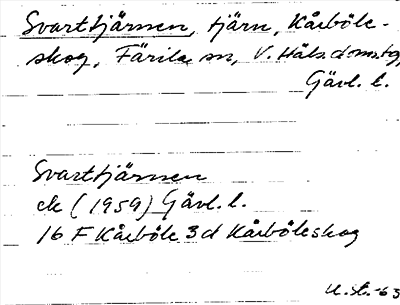 Svarttjärnen, tjärn, Kårböle-
skog, Färila sn, V. Häls. domstg,
Gävl. l.
Svarttjärnen
ek (1959) Gävl. l.
16 F Kårböle 3d Kårböleskog
U. St. -63